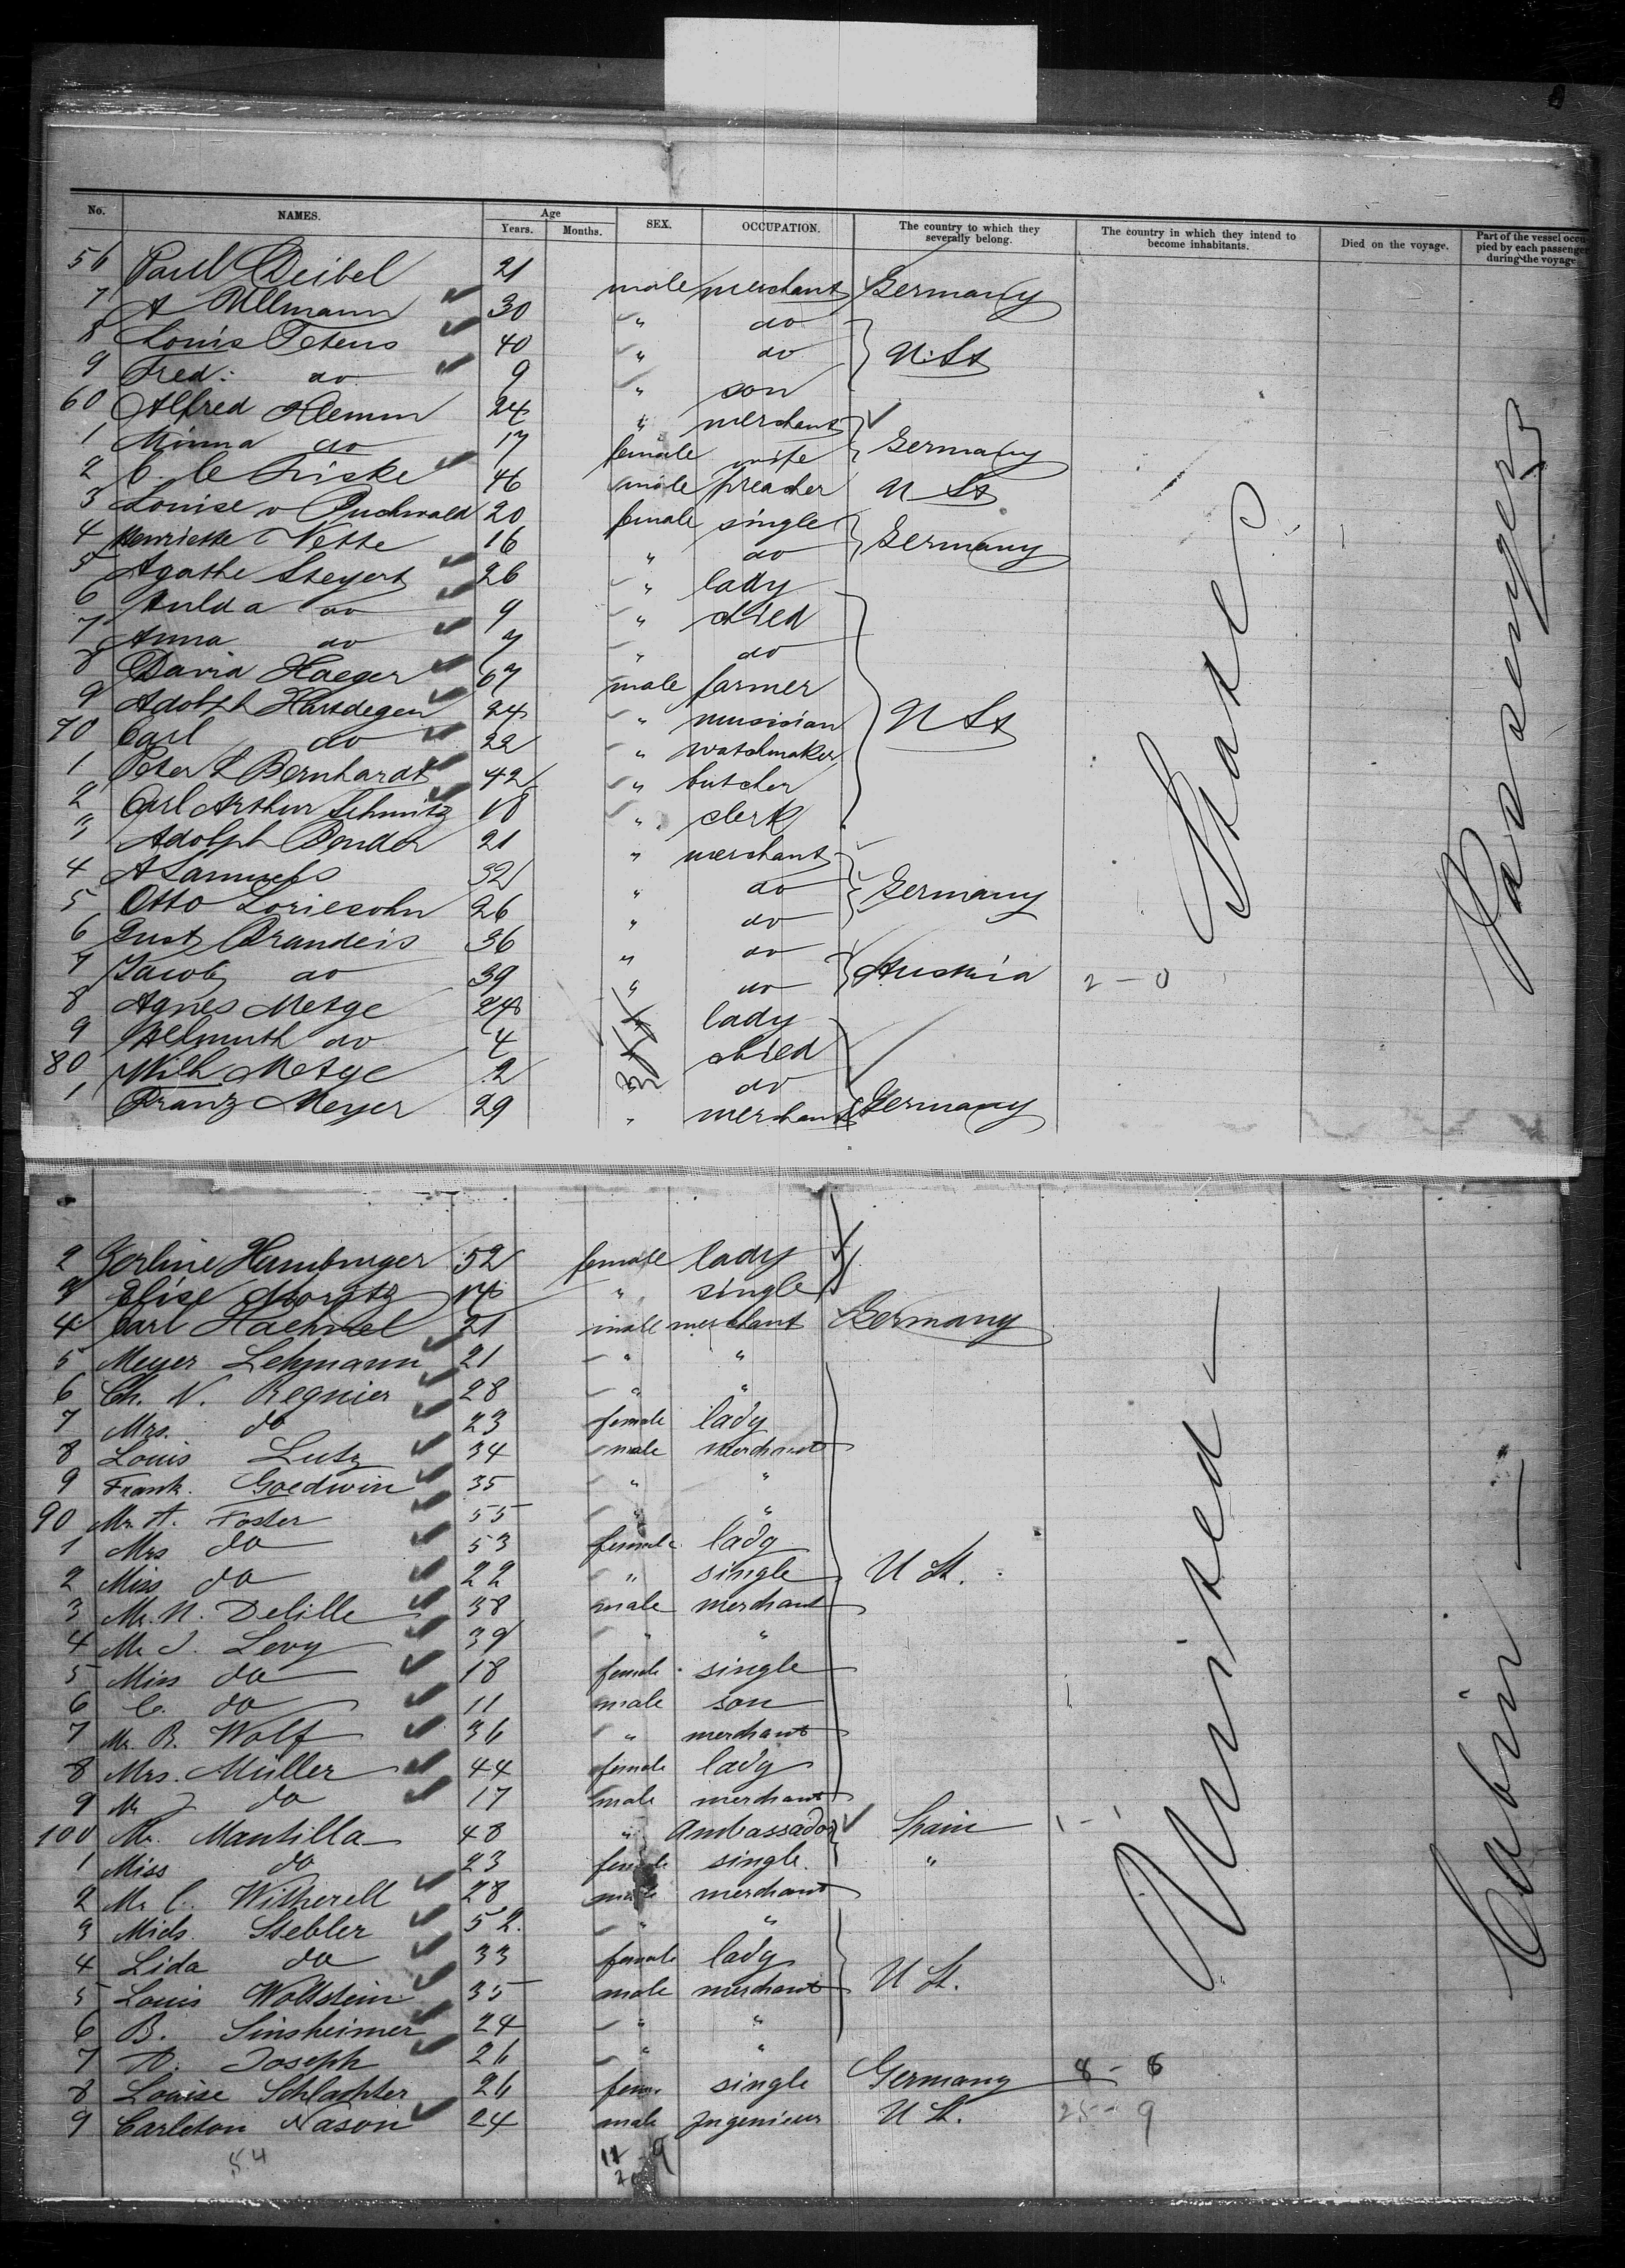 No. NAMES. Age Years. Months. SEX. OCCUPATION. The country to which they severally belong. The country in which they intend to become inhabitants. Died on the voyage. Part of the vessel occupied by each passenger during the voyage
56 Paul Deibel 21 male merchant Germany
7 A Ullmann 30 " do
8 Louis Tetens 40 " do U. St
9 Fred: do 9 " son
60 Alfred Klemm 24 " merchant
1 Minna do 17 female wife Germany
2 46 male preacher U St
3 Louise v Buchwald 20 female single
4 Henriette Nette 16 " do Germany
5 Agathe Steyert 26 " lady
6 Hulda do 9 " child
7 Anna do 7 " do
8 David Haeger 67 male farmer
9 Adolph Hartdegen 24 " musician U St
70 Carl do 22 " watchmaker
1 Peter L Bernhardt 42 " butcher
2 Carl Arthur Schmitz 18 " clerk
3 Adolph Bender 21 " merchant
4 A Samuels 32 " do Germany
5 Otto Loriesohn 26 " do
6 Gust Brandeis 36 " do
7 Jacob do 39 " do Austria 2-0
8 Agnes Metge 28 lady
9 Helmuth do 4 child
80 Wilh Metge 2 do
1 Franz Meyer 29 " merchant Germany
2 Zerline Hamburger 52 female lady
3 Elise Moritz 14 " single
4 Carl Haehnel 21 male merchant Germany
5 Meyer Lehmann 21 " "
6 Ch. N. Regnier 28 " "
7 Mrs. do 23 female lady
8 Louis Lutz 34 male merchant
9 Frank. Goedwin 35 " "
90 Mr. A. Foster 55 " "
1 Mrs do 53 female lady
2 Miss do 22 " single U St.
3 Mr. N. Delille 38 male merchant
4 Mr J. Levy 39 " "
5 Miss do 18 female single
6 C. do 11 male son
7 Mr. B. Wolf 36 " merchant
8 Mrs. Müller 44 female lady
9 Mr J do 17 male merchant
100 Mr. Mantilla 48 " Ambassador Spain 1-1
1 Miss do 23 female single "
2 Mr C. Witherell 28 male merchant
3 Mich. Stebler 52. " "
4 Lida do 33 female lady
5 Louis Wollstein 35 male merchant U St.
6 B. Sinsheimer 24 " "
7 A. Joseph 26 " "
8 Louise Schlachter 26 fem. single Germany 8-6
9 Carleton Nason 24 male Ingenieur U St. 25-9
54
United States
Cabin Passengers